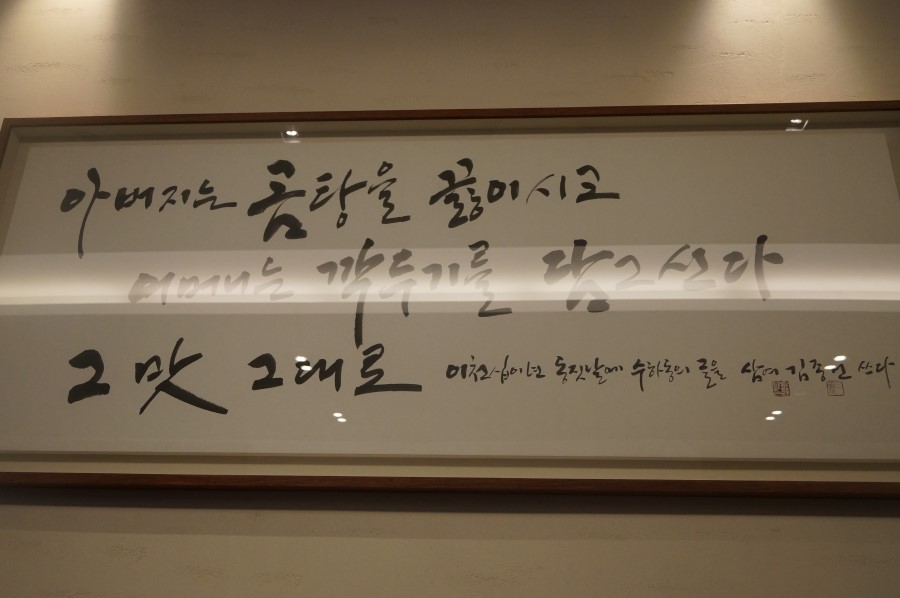 아버지는 곰탕을 끓이시고
어머니는 깍두기를 담그신다
그 맛 그대로
이천십이년 동짓날에 수하동의 글을 삼여 김종건 쓰다